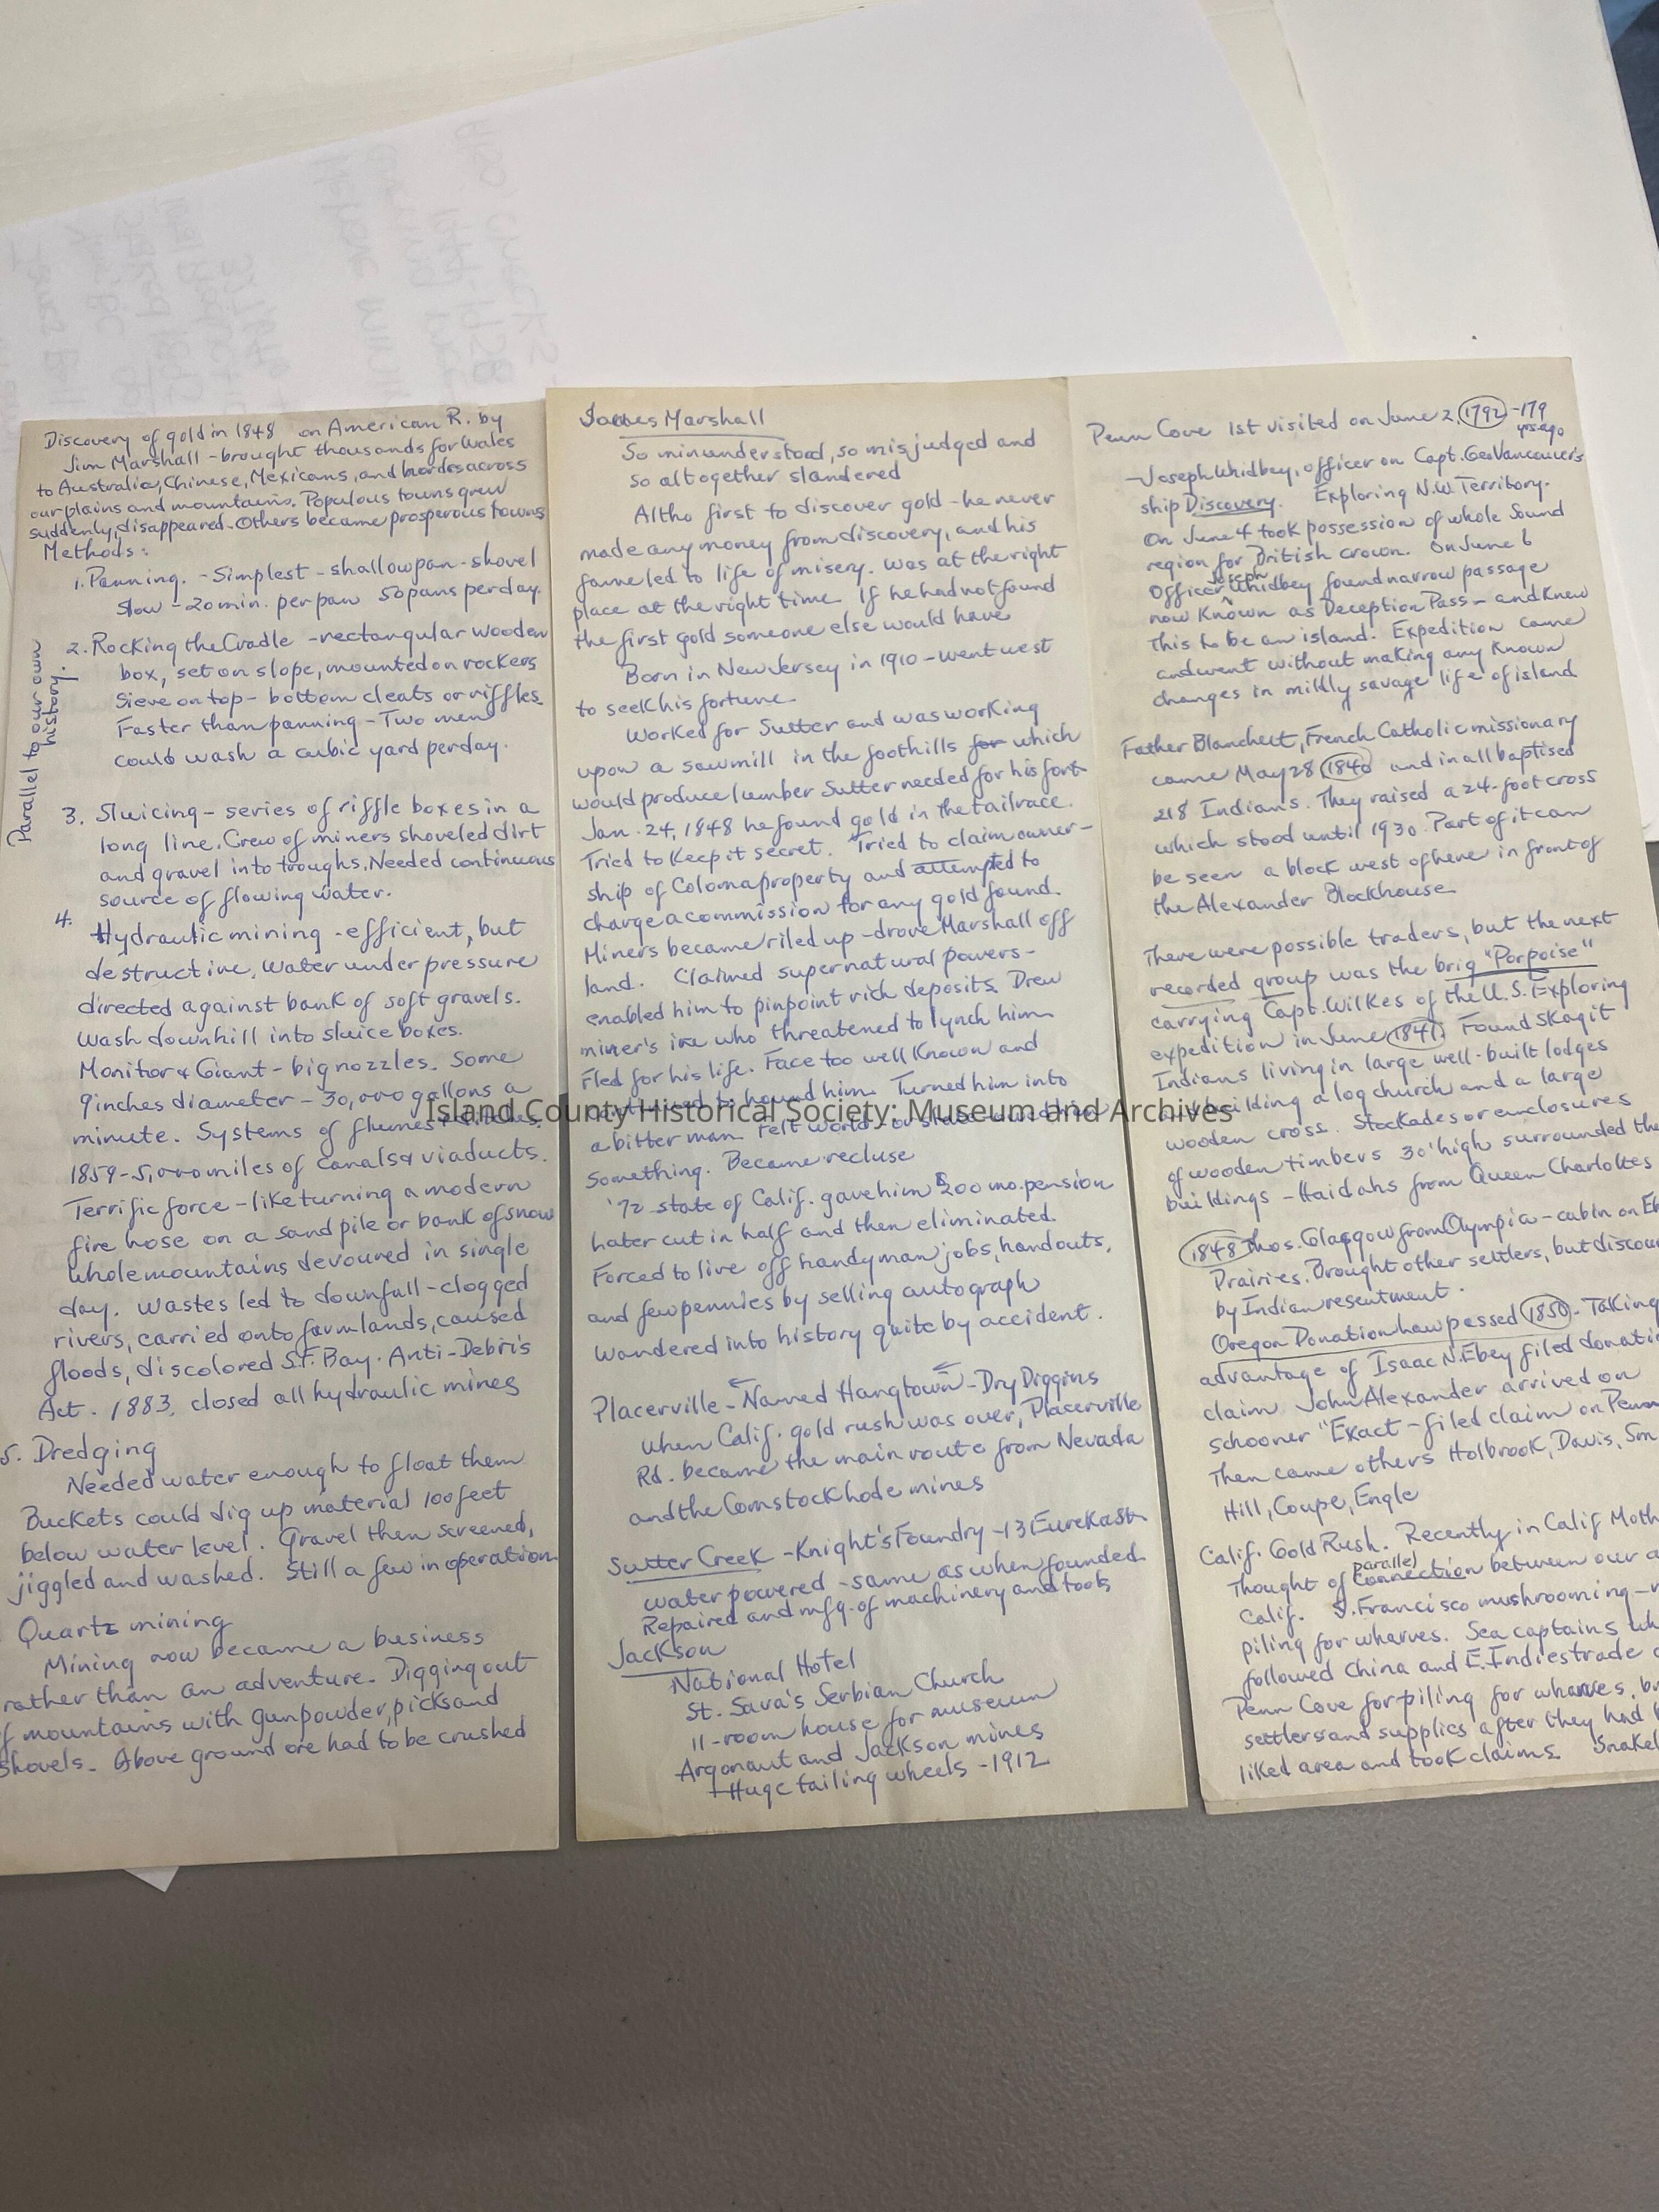 Discovery of gold in 1848 on American R. by
Jim Marshall - brought thousands for Wales
to Australia, Chinese, Mexicans, and hordes across
our plains and mountains. Populous towns grew
suddenly, disappeared. Others became prosperous towns
Methods:
1. Panning. - Simplest - shallow pan - shovel
Slow - 20 min. per pan 50 pans per day.
Parallel to our own
history.
2. Rocking the Cradle - rectangular wooden
box, set on slope, mounted on rockers
Sieve on top - bottom cleats or riffles
Faster than panning - Two men
could wash a cubic yard per day.
3. Sluicing - series of riffle boxes in a
long line. Crew of miners shoveled dirt
and gravel into troughs. Needed continuous
source of flowing water.
4. Hydraulic mining - efficient, but
destructive. Water under pressure
directed against bank of soft gravels.
Wash downhill into sluice boxes.
Monitor & Giant - big nozzles. Some
9 inches diameter - 30,000 gallons a
minute. Systems of flumes
1859 - 5,000 miles of canals & viaducts.
Terrific force - like turning a modern
fire hose on a sand pile or bank of snow
Whole mountains devoured in single
day. Wastes led to downfall - clogged
rivers, carried onto farmlands, caused
floods, discolored S.F. Bay. Anti-Debris
Act. 1883, closed all hydraulic mines
5. Dredging
Needed water enough to float them
Buckets could dig up material 100 feet
below water level. Gravel then screened,
jiggled and washed. Still a few in operation
Quartz mining
Mining now became a business
rather than an adventure. Digging out
f mountains with gunpowder, picks and
shovels. Above ground ore had to be crushed
James Marshall
So minunderstood, so misjudged and
so altogether slandered
Altho first to discover gold - he never
made any money from discovery, and his
fame led to life of misery. Was at the right
place at the right time. If he had not found
the first gold someone else would have
Born in New Jersey in 1910 - went west
to seek his fortune.
Worked for Sutter and was working
upon a sawmill in the foothills for which
would produce lumber Sutter needed for his fort
Jan. 24, 1848 he found gold in the tailrace.
Tried to keep it secret. Tried to claim owner-
ship of Coloma property and attempted to
charge a commission for any gold found.
Miners became riled up - drove Marshall off
land. Claimed supernatural powers -
enabled him to pinpoint rich deposits. Drew
miner's ire who threatened to lynch him
Fled for his life. Face too well known and
continued to hound him. Turned him into
a bitter man. Felt world or state owed him
something. Became recluse
'72 state of Calif. gave him $200 mo. pension
Later cut in half and then eliminated.
Forced to live off handyman jobs, handouts,
and few pennies by selling autograph
Wandered into history quite by accident.
Placerville - Named Hangtown - Dry Diggins
When Calif. gold rush was over, Placerville
Rd. became the main route from Nevada
and the Comstock Lode mines
Sutter Creek - Knight's Foundry - 13 Eureka St
water powered - same as when founded
Repaired and mfg. of machinery and tools
Jackson
National Hotel
St. Sava's Serbian Church
11-room house for museum
Argonaut and Jackson mines
Huge tailing wheels - 1912
Penn Cove 1st visited on June 2, 1792 - 179
yrs. ago
- Joseph Whidbey, officer on Capt. Geo Vancouver's
ship Discovery. Exploring N.W. Territory.
On June 4 took possession of whole Sound
region for British crown. On June 6
Officer Joseph Whidbey found narrow passage
now known as Deception Pass - and knew
this to be an island. Expedition came
and went without making any known
changes in mildly savage life of island
Father Blanchett, French Catholic missionary
came May 28 1840 and in all baptised
218 Indians. They raised a 24-foot cross
which stood until 1930. Part of it can
be seen a block west of here in front of
the Alexander Blockhouse.
There were possible traders, but the next
recorded group was the brig "Porpoise"
carrying Capt. Wilkes of the U.S. Exploring
expedition in June 1841. Found Skagit
Indians living in large well-built lodges
and building a log church and a large
wooden cross. Stockades or enclosures
of wooden timbers 30' high surrounded the
buildings - Haidahs from Queen Charlottes
1848 Thos. Glasgow from Olympia - cabin on Eb
Prairies. Brought other settlers, but discou
by Indian resentment.
Oregon Donation Law passed 1850. Taking
advantage of Isaac N. Ebey filed donati
claim John Alexander arrived on
schooner "Exact - filed claim on Penn
Then came others Holbrook, Davis, Sm
Hill, Coupe, Engle
Calif. Gold Rush. Recently in Calif Moth
Thought of parallel connection between our a
Calif. S. Francisco mushrooming -
piling for wharves. Sea captains wh
followed China and E. Indies trade
Penn Cove for piling for wharves, br
settlers and supplies after they had
liked area and took claims. Snakel
Island County Historical Society: Museum and Archives